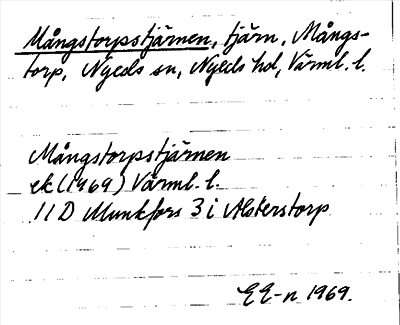 Mångstorpstjärnen, tjärn, Mångs-
torp, Nyeds sn, Nyeds hd, Värml. l.
Mångstorpstjärnen
ek (1969) Värml. l.
11 D Munkfors 3 i Alsterstorp
EE-n 1969.